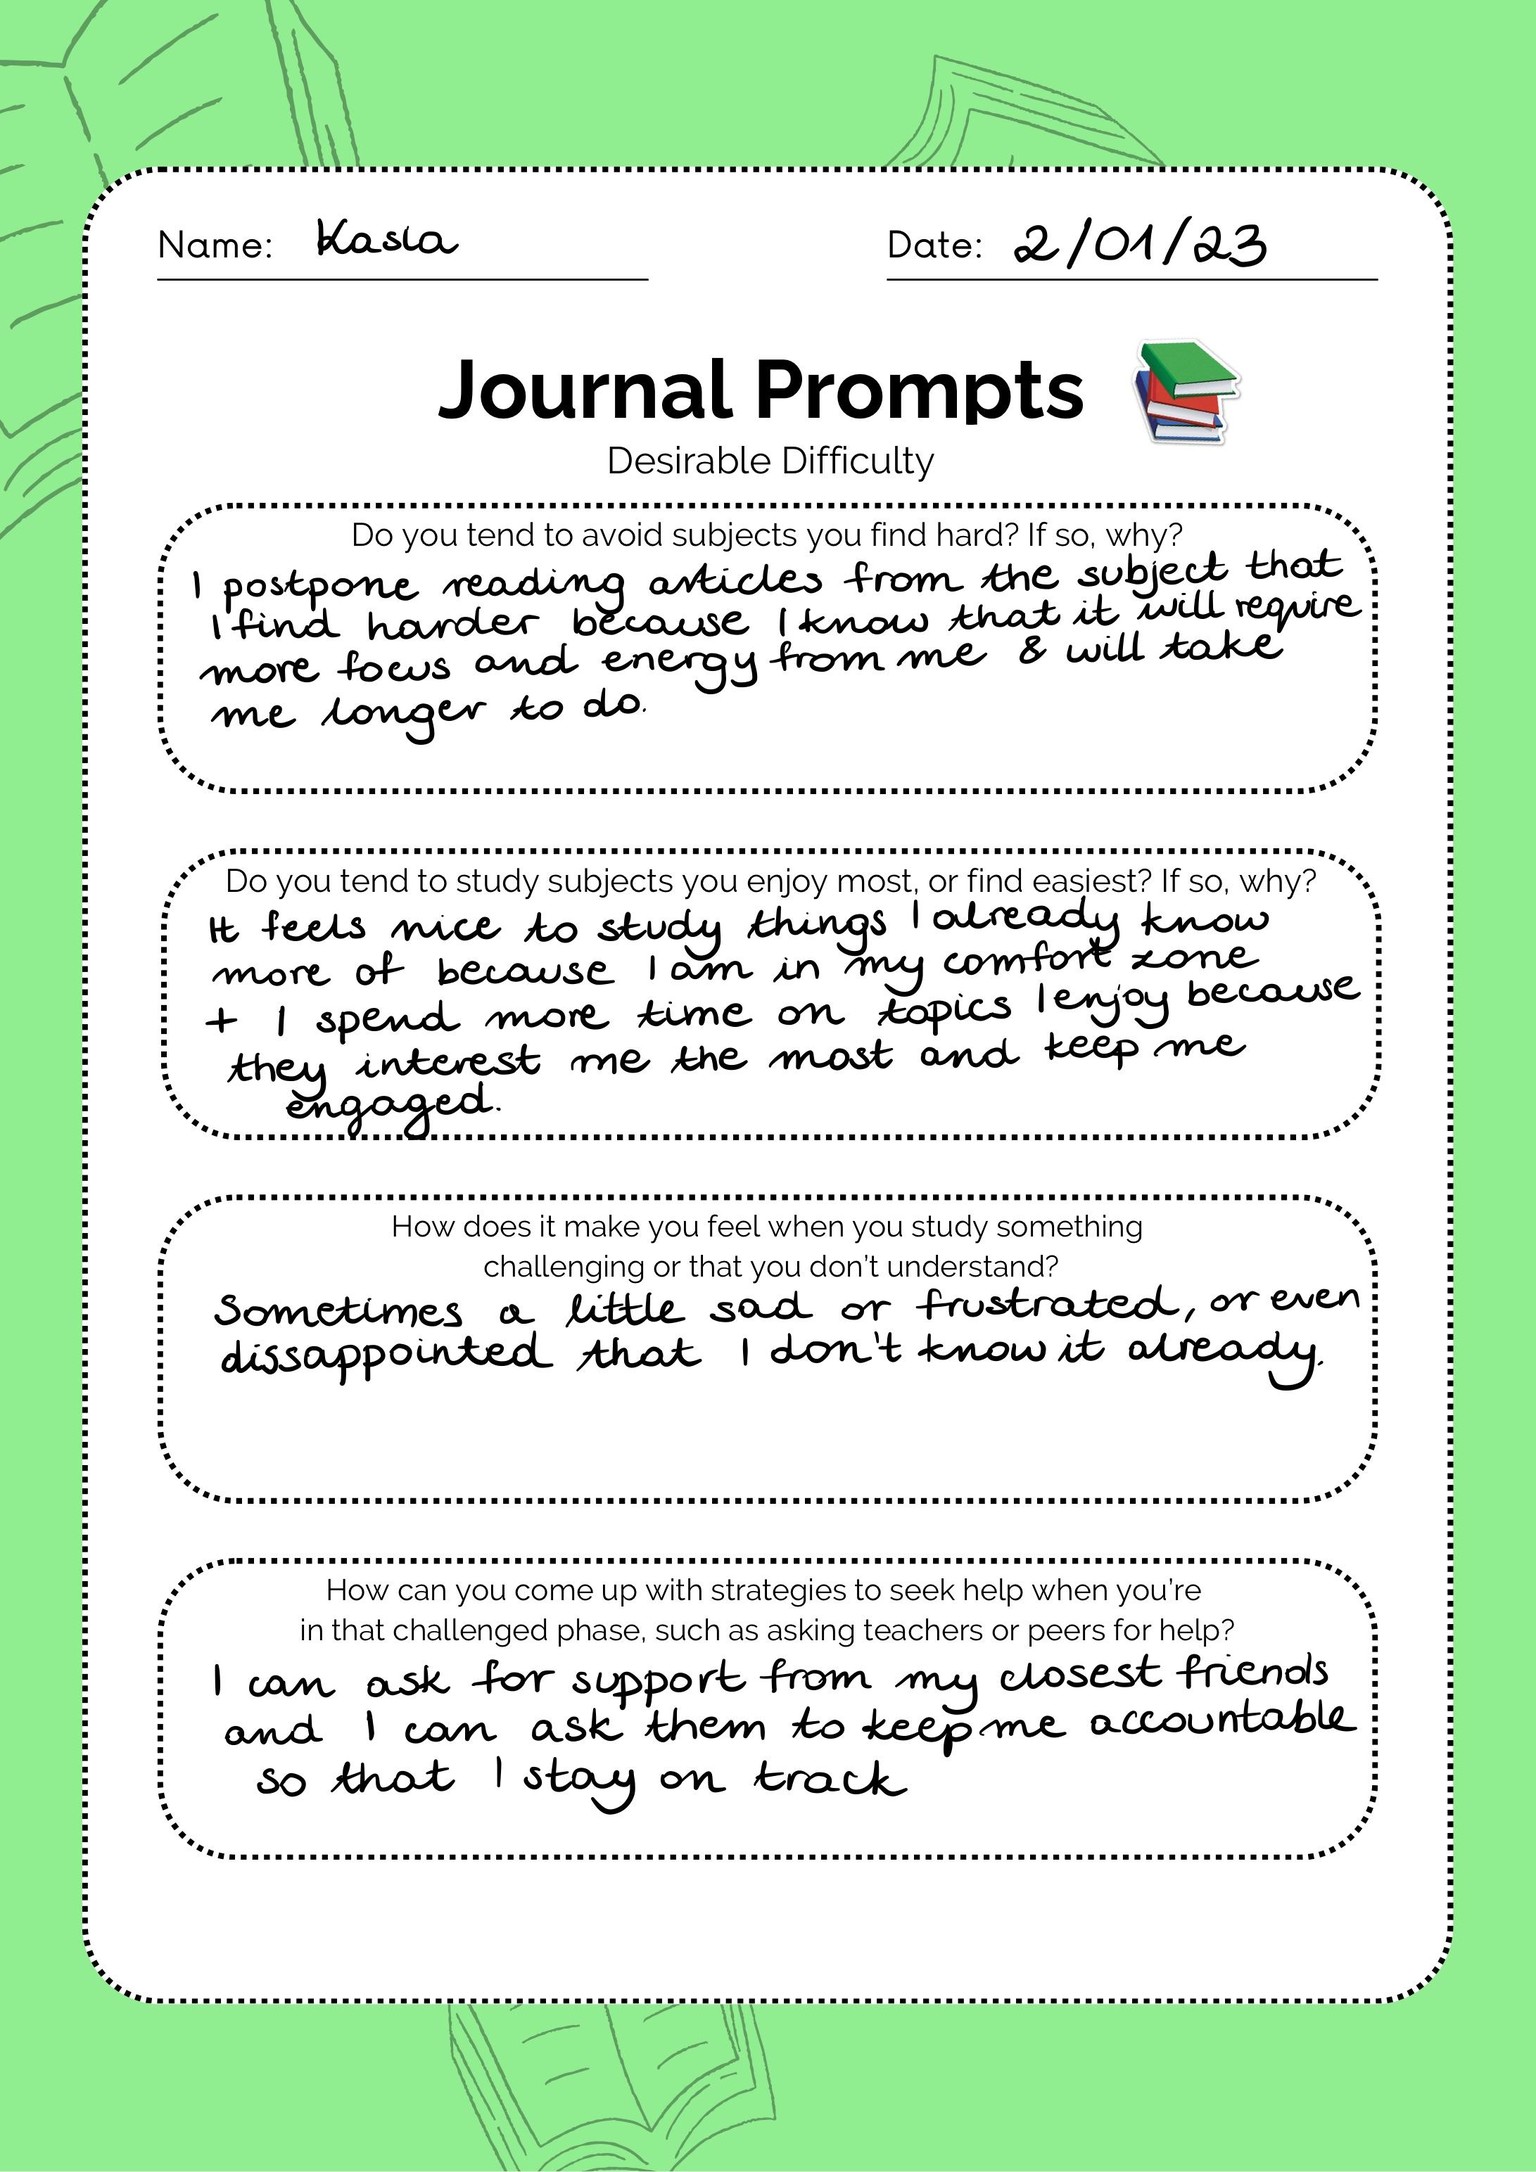 Name: Kasia
Date: 2/01/23
Journal Prompts
Desirable Difficulty
Do you tend to avoid subjects you find hard? If so, why?
I postpone reading articles from the subject that
I find harder because I know that it will require
more focus and energy from me & will take
me longer to do.
Do you tend to study subjects you enjoy most, or find easiest? If so, why?
It feels nice to study things I already know
more of because I am in my comfort zone
+ I spend more time on topics I enjoy because
they interest me the most and keep me
engaged.
How does it make you feel when you study something
challenging or that you don't understand?
Sometimes a little sad or frustrated, or even
dissappointed that I don't know it already.
How can you come up with strategies to seek help when you're
in that challenged phase, such as asking teachers or peers for help?
I can ask for support from my closest friends
and I can ask them to keep me accountable
so that I stay on track